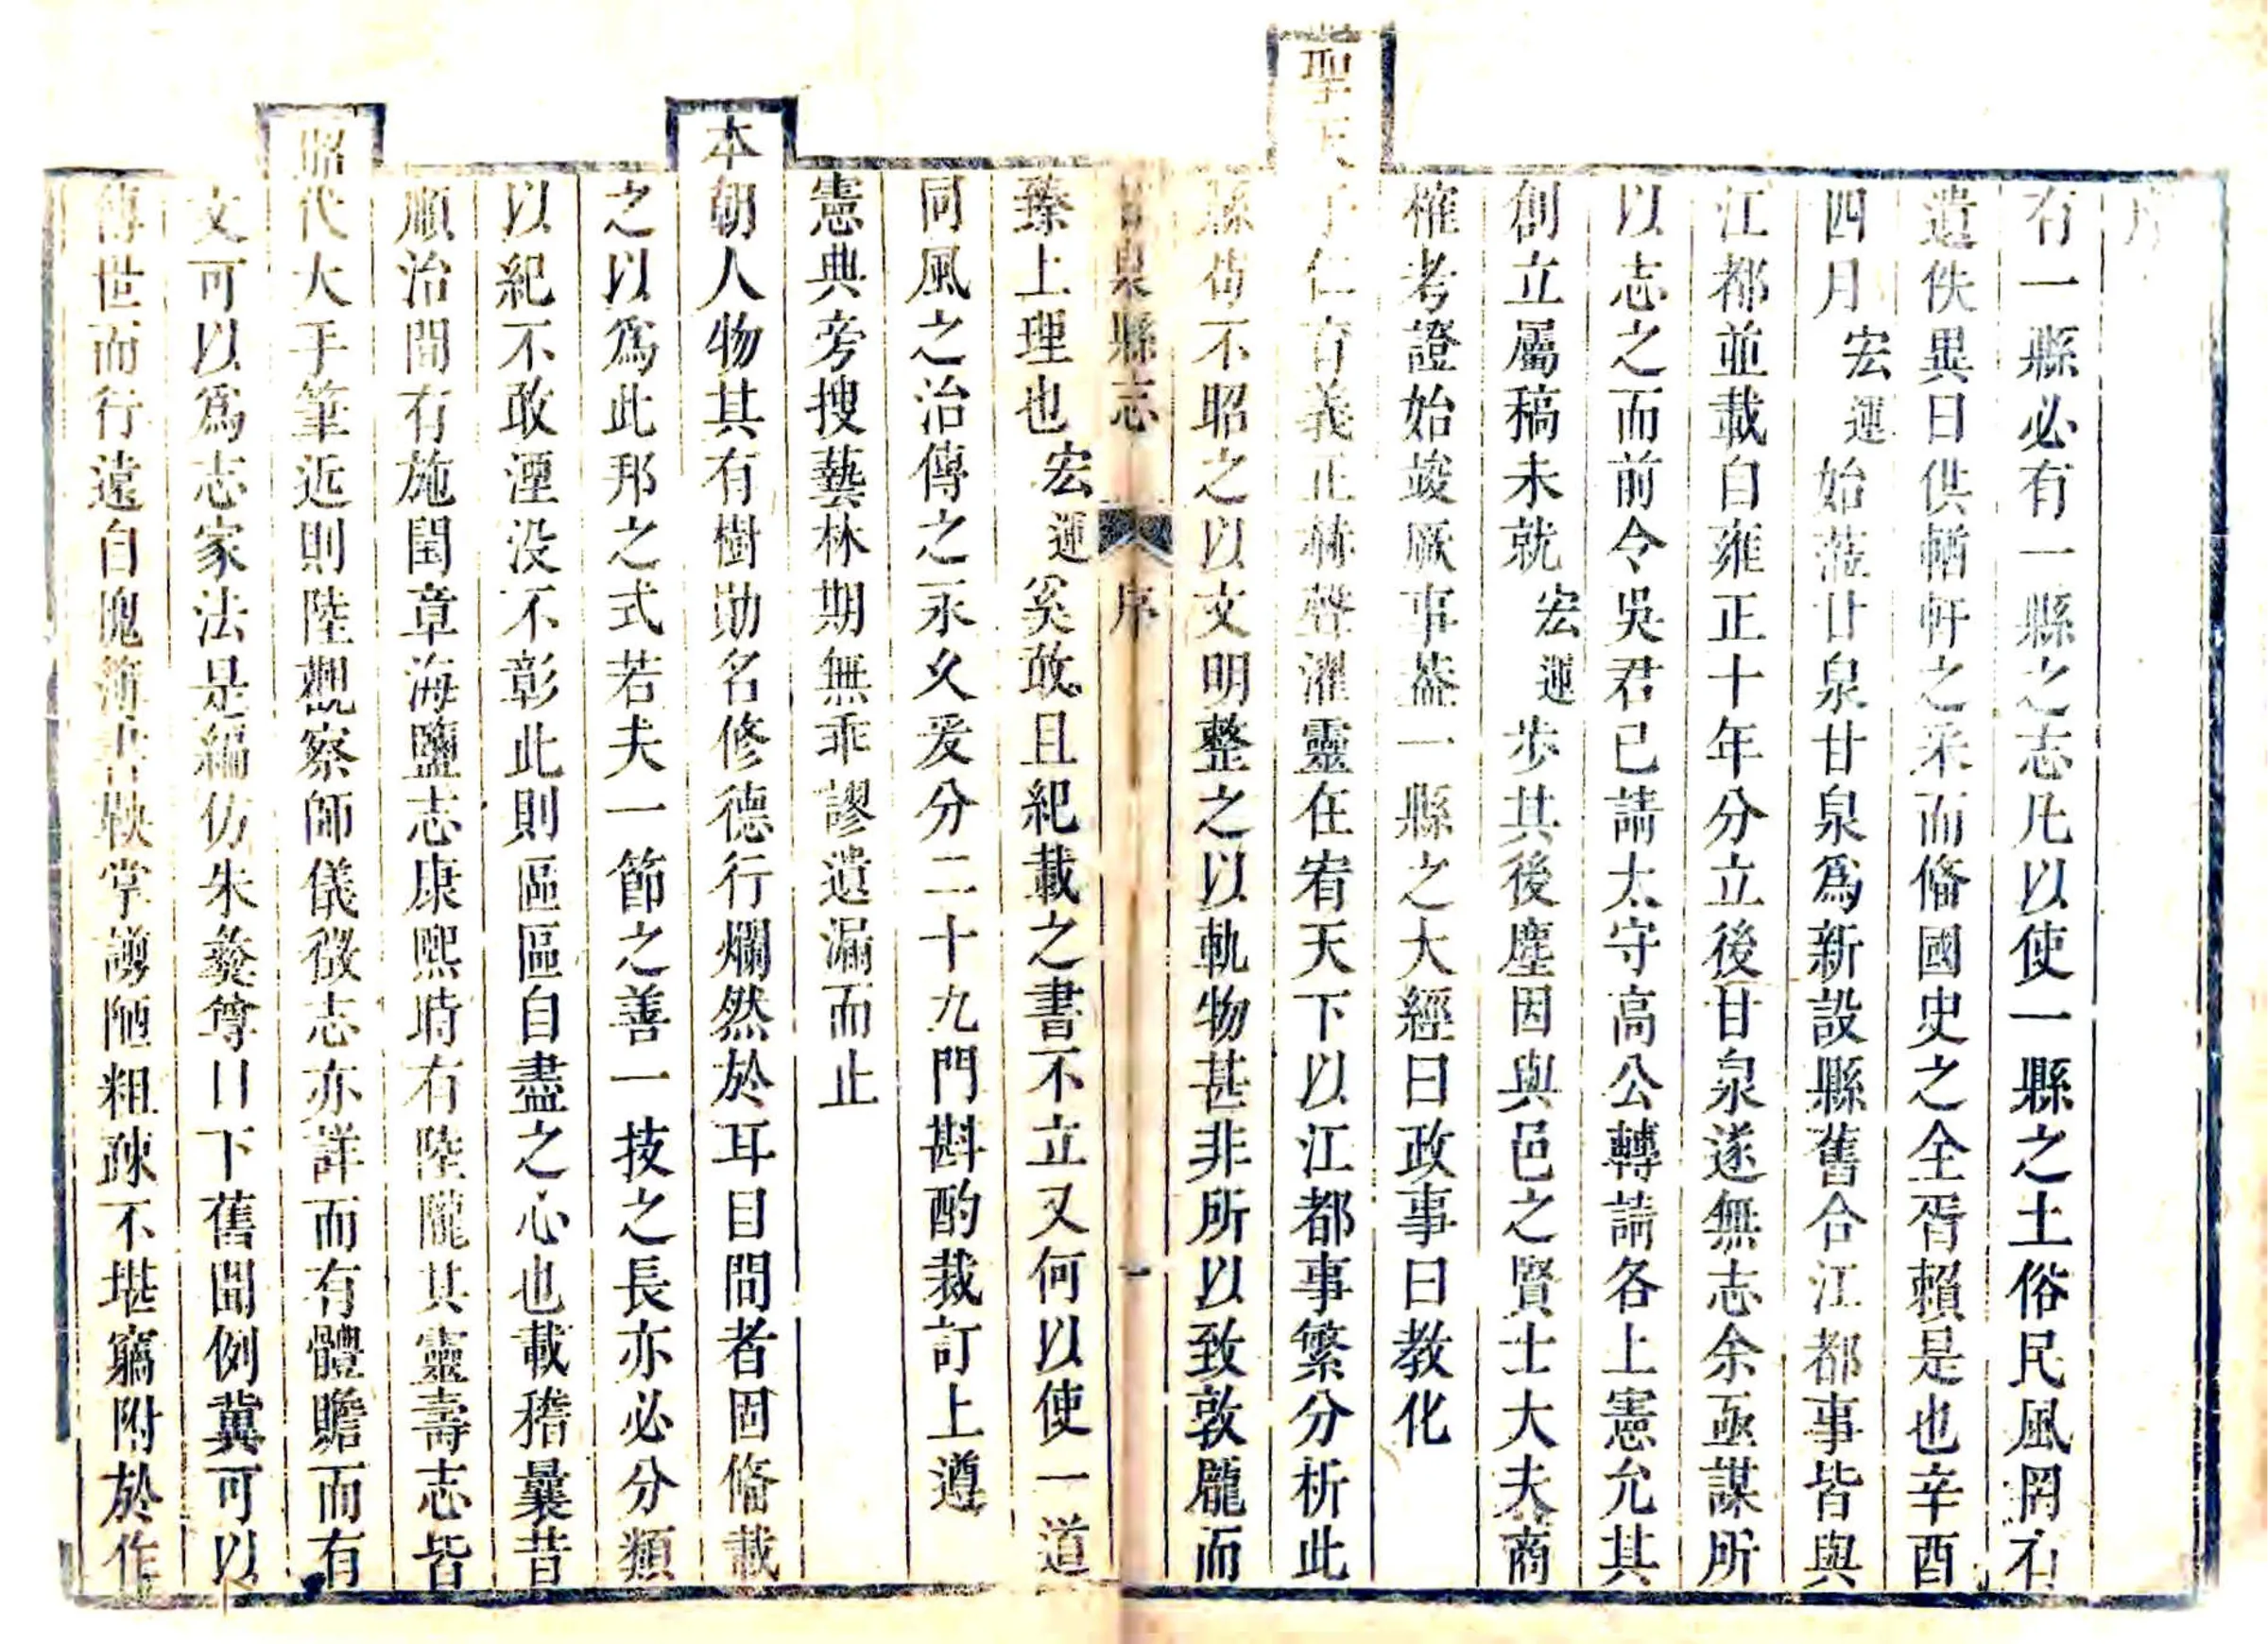 序
有一縣必有一縣之志凡以使一縣之土俗民風罔有
遺佚異日供輶軒之采而備國史之全胥賴是也辛酉
四月宏運始蒞甘泉甘泉爲新設縣舊合江都事皆與
江都並載自雍正十年分立後甘泉遂無志余亟謀所
以志之而前令吳君已請太守高公轉請各上憲允其
創立屬稿未就宏運步其後塵因與邑之賢士大夫商
榷考證始竣厥事葢一縣之大經曰政事曰教化
聖天子仁育義正赫聲濯靈在宥天下以江都事繁分析此
縣苟不昭之以文明整之以軌物甚非所以致敦龐而
臻上理也宏運奚敢且紀載之書不立又何以使一道
同風之治傳之永久爰分二十九門斟酌裁訂上遵
憲典旁搜藝林期無乖謬遺漏而止
本朝人物其有樹勛名修德行爛然於耳目間者固備載
之以爲此邦之式若夫一節之善一技之長亦必分類
以紀不敢湮没不彰此則區區自盡之心也載稽曩昔
順治間有施閏章海鹽志康熙時有陸隴其靈壽志皆
昭代大手筆近則陸觀察師儀徵志亦詳而有體贍而有
文可以爲志家法是編仿朱彝尊日下舊聞例冀可以
傳世而行遠自愧簿書鞅掌謭陋粗疎不堪竊附於作
甘泉縣志
序
一